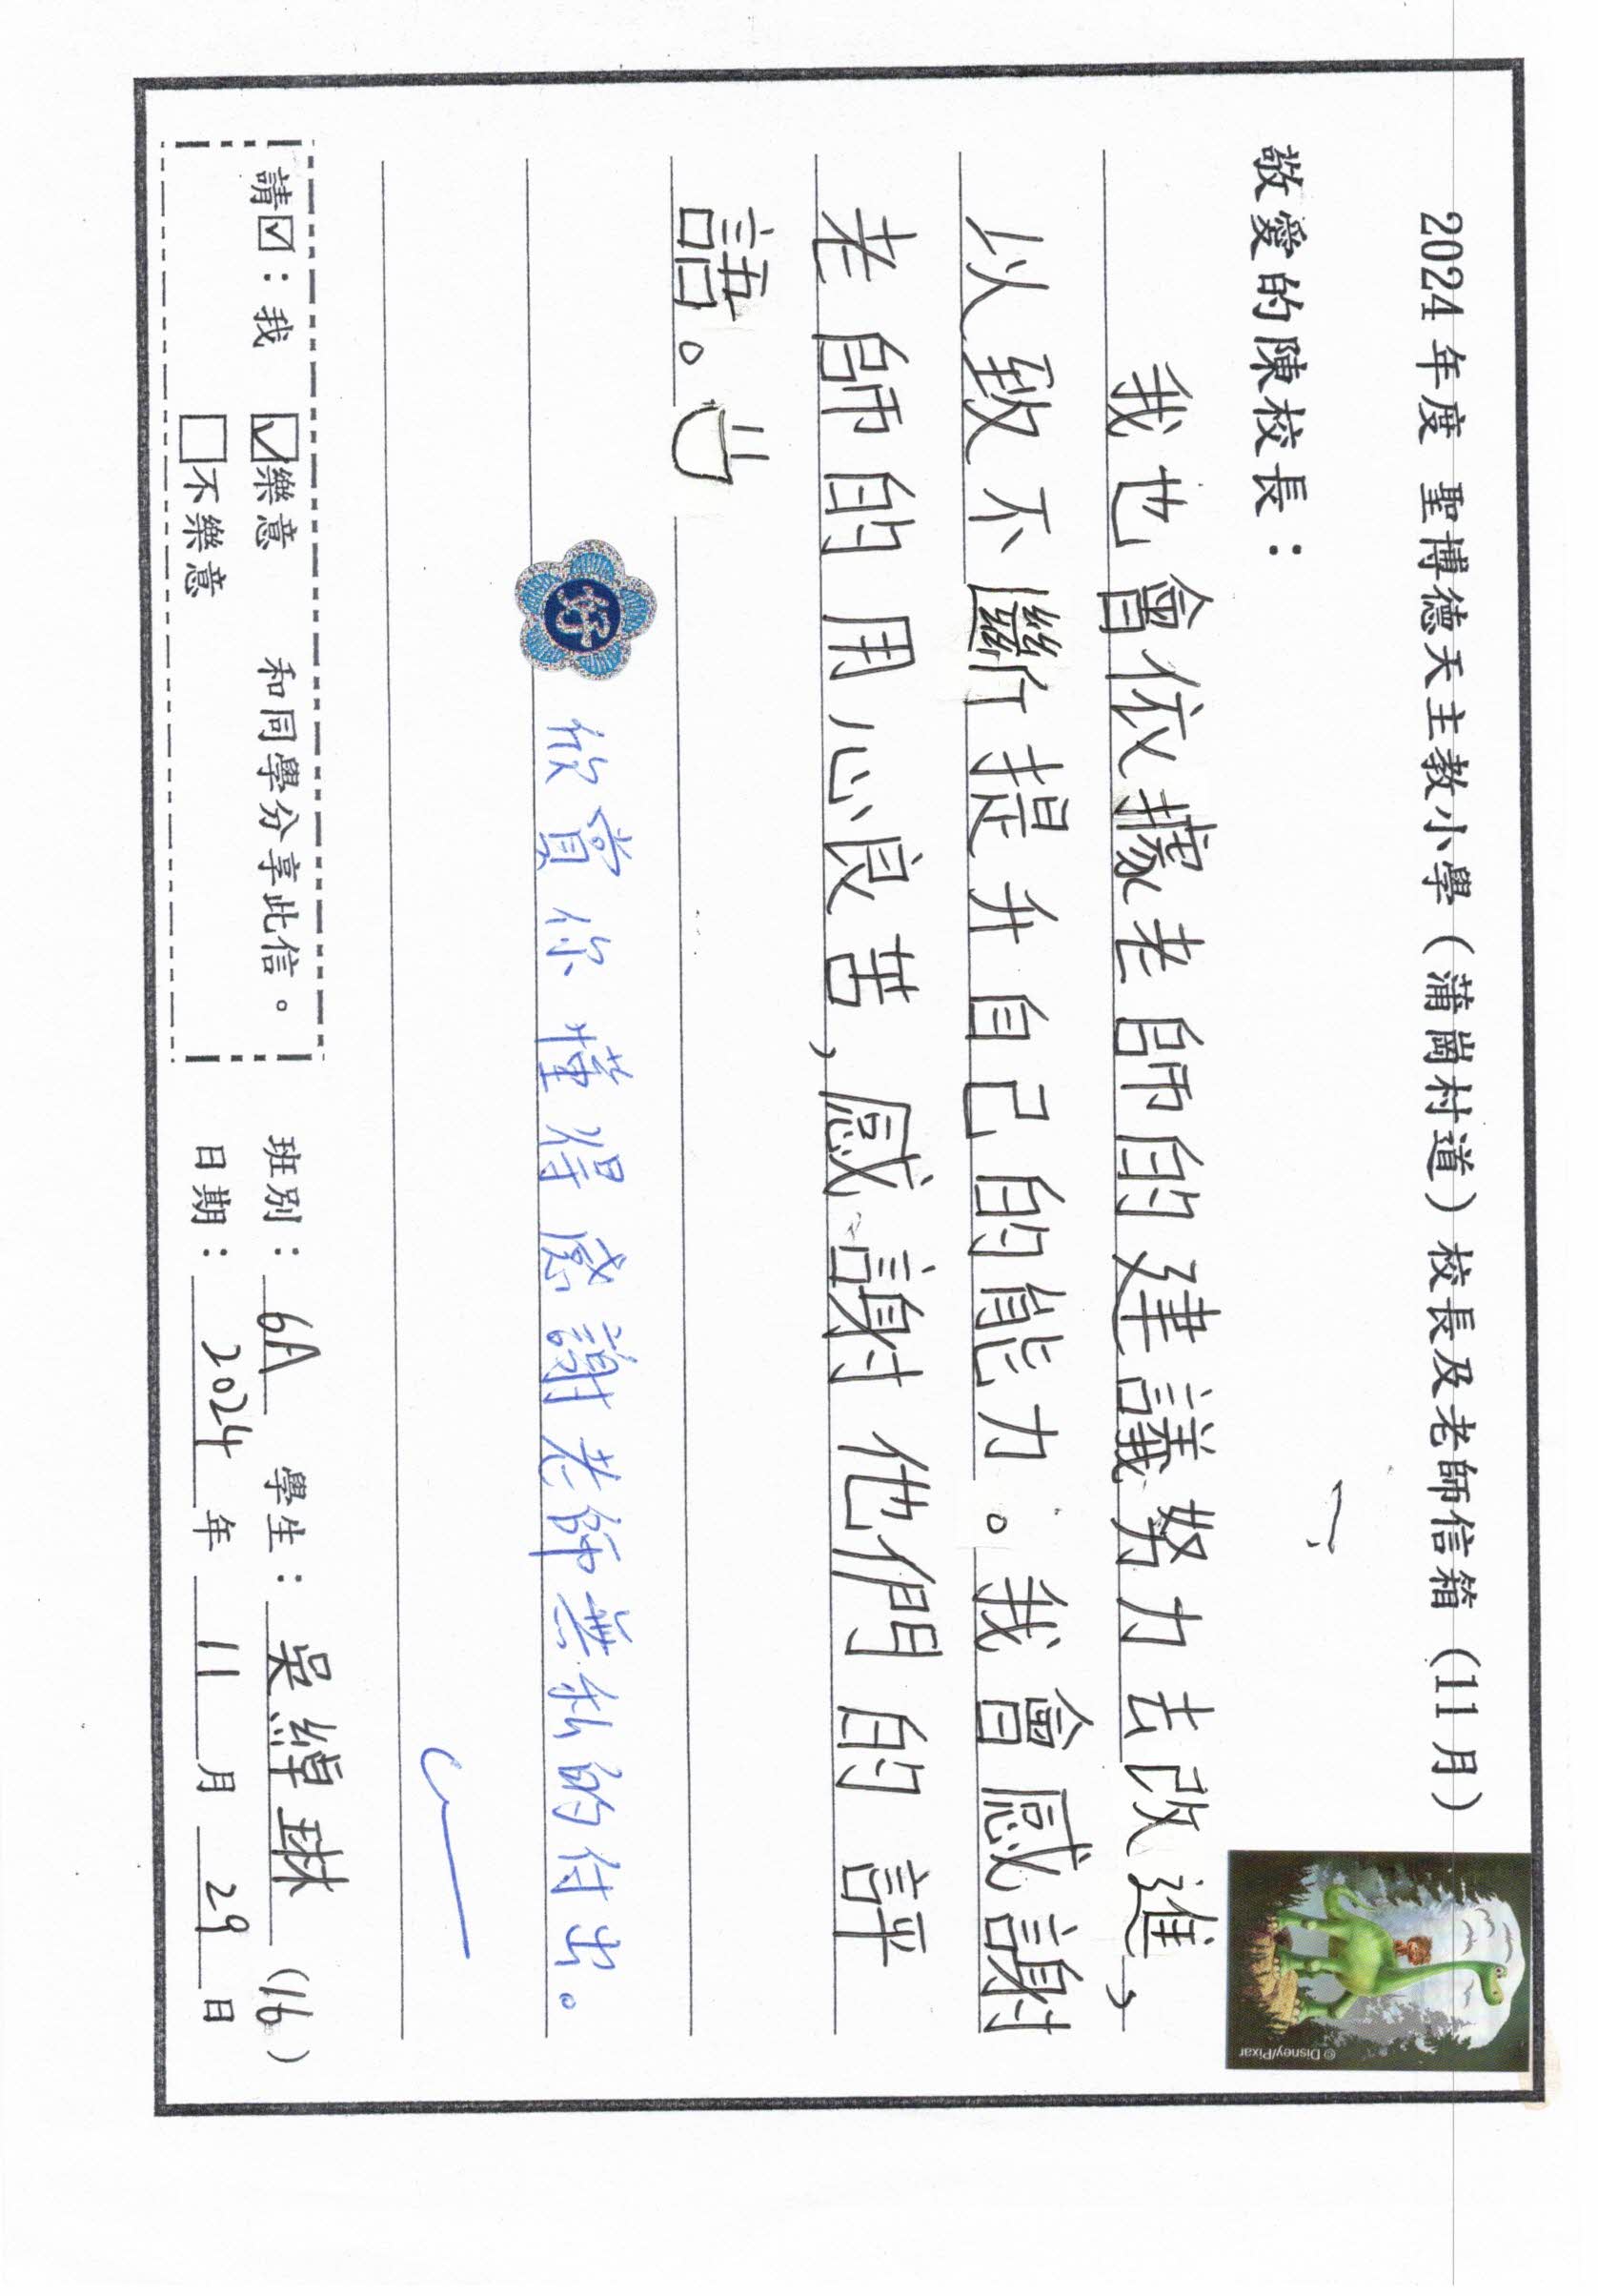 2024年度 聖博德天主教小學（蒲崗村道）校長及老師信箱（11月）
© Disney/Pixar
敬愛的陳校長：
我也會依據老師的建議努力去改進，
以致不斷提升自己的能力。我會感謝
老師的用心良苦，感謝他們的評
語。
好 欣賞你懂得感謝老師無私的付出。
請☑：我 ☑樂意 和同學分享此信。 班別：6A 學生：吳綽琳（16）
□不樂意 日期：2024年11月29日